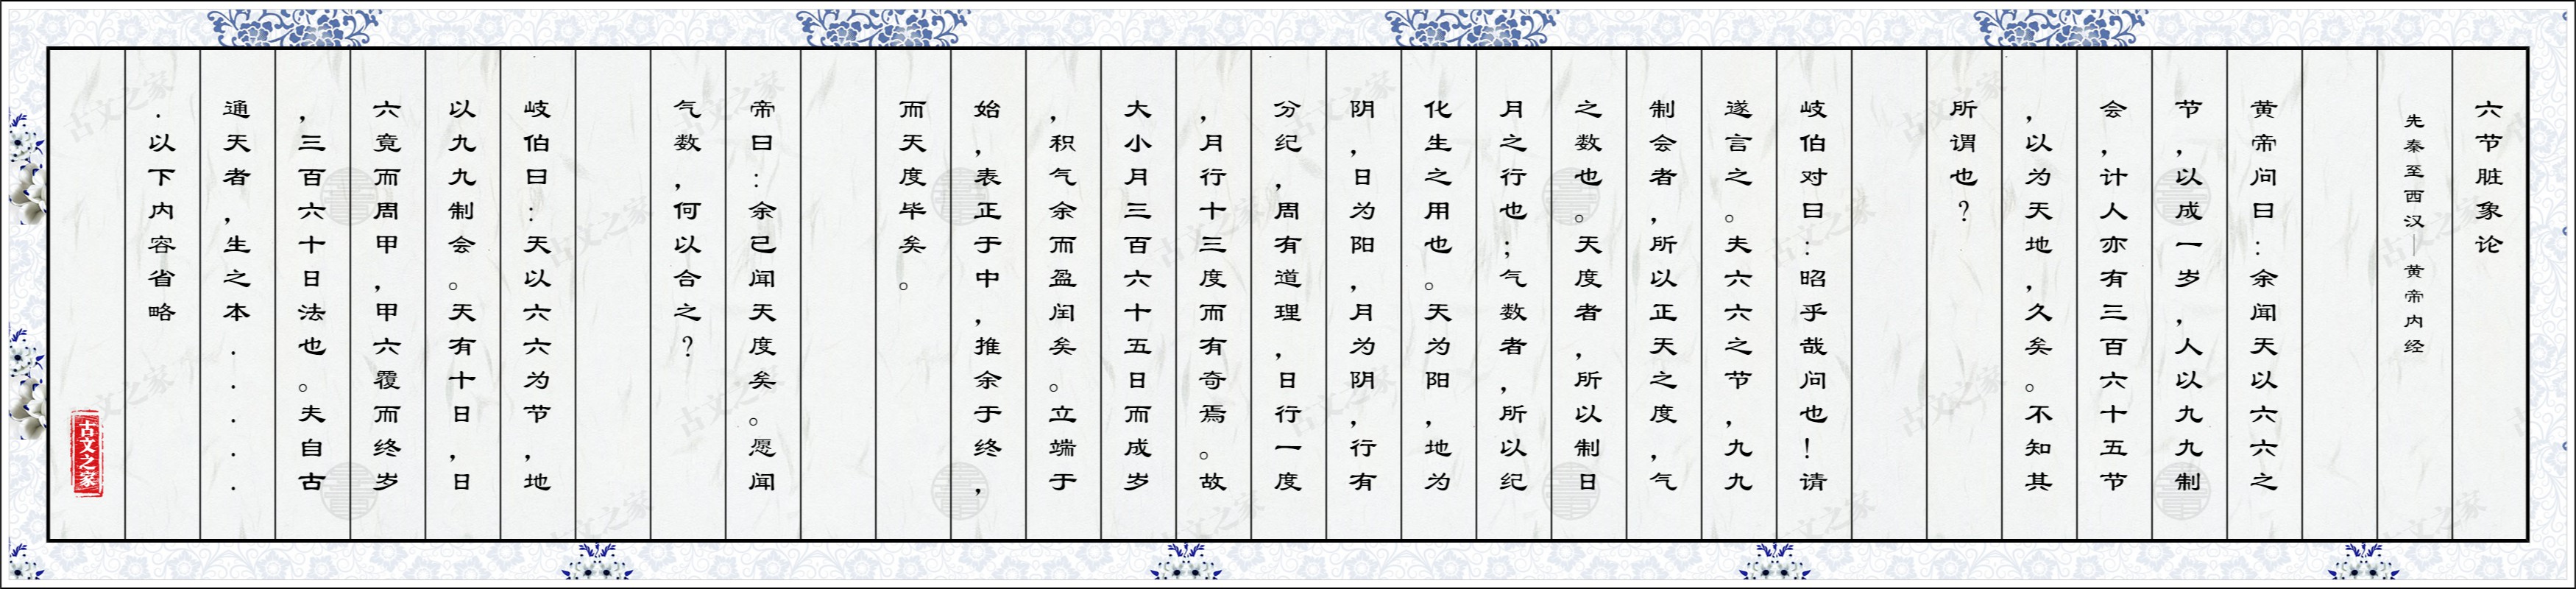 六节脏象论
先秦至西汉—黄帝内经
黄帝问曰：余闻天以六六之
节，以成一岁，人以九九制
会，计人亦有三百六十五节
，以为天地，久矣。不知其
所谓也？
岐伯对曰：昭乎哉问也！请
遂言之。夫六六之节，九九
制会者，所以正天之度，气
之数也。天度者，所以制日
月之行也；气数者，所以纪
化生之用也。天为阳，地为
阴，日为阳，月为阴，行有
分纪，周有道理，日行一度
，月行十三度而有奇焉。故
大小月三百六十五日而成岁
，积气余而盈闰矣。立端于
始，表正于中，推余于终，
而天度毕矣。
帝曰：余已闻天度矣。愿闻
气数，何以合之？
岐伯曰：天以六六为节，地
以九九制会。天有十日，日
六竟而周甲，甲六覆而终岁
，三百六十日法也。夫自古
通天者，生之本.....
.以下内容省略
古文之家